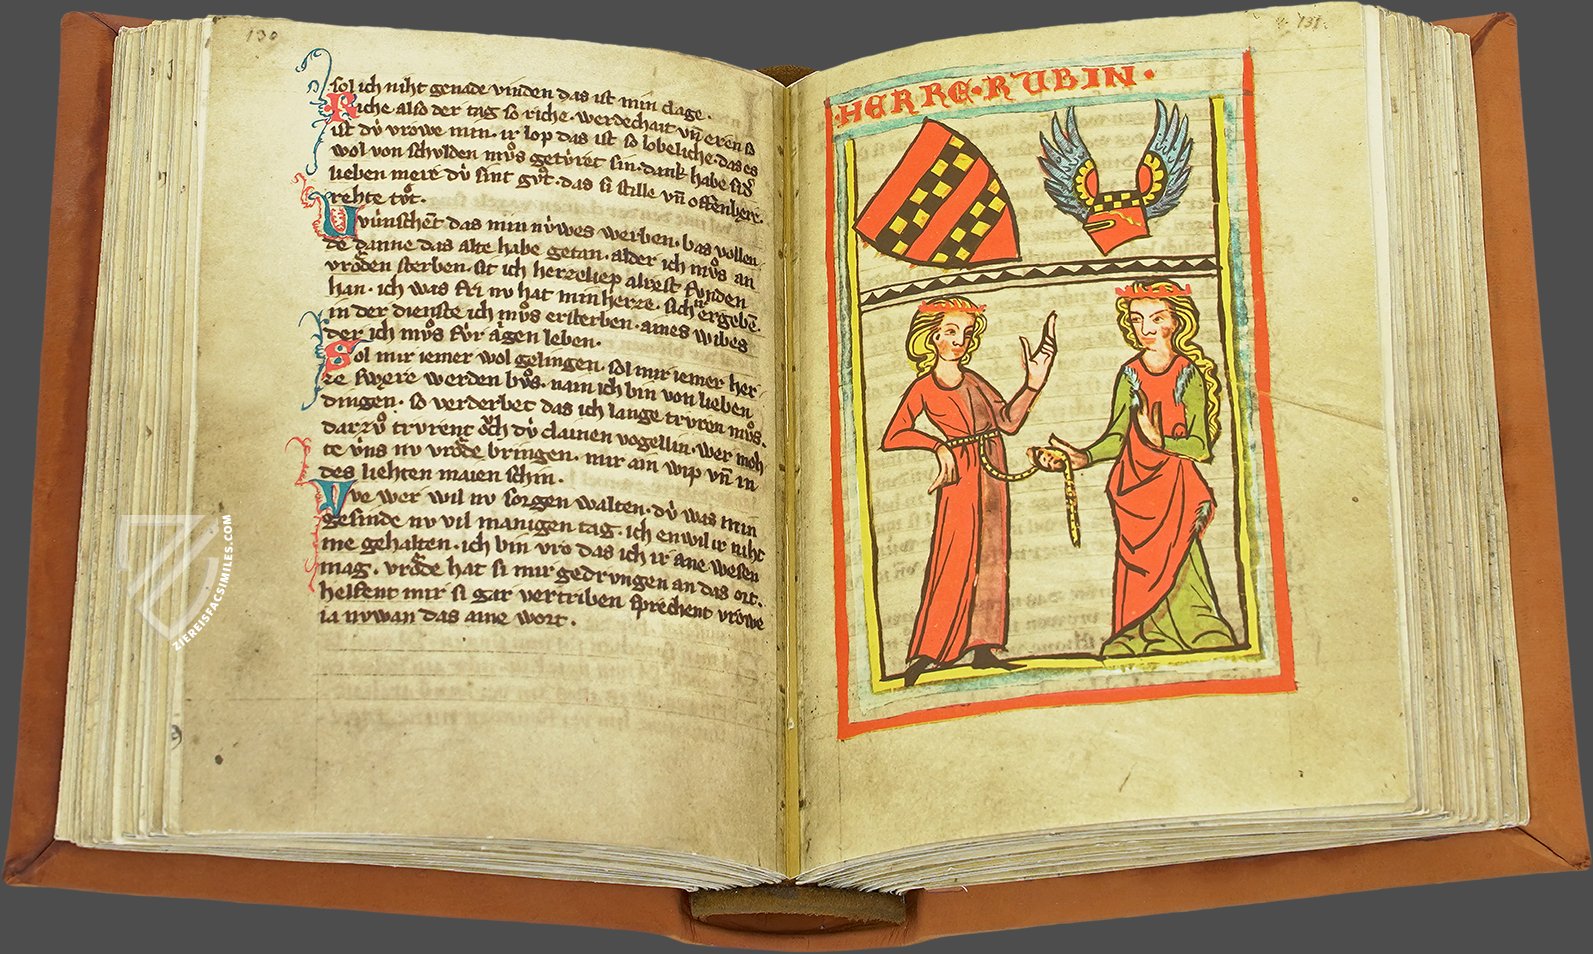 130
sol ich niht genade vinden das ist min clage.
Riche also der tag so riche. werdechait vn̄ eren so
ist dv̍ vrowe min. ir lop das ist so lobeliche. das es
wol von schvlden mv̊s getv̍ret sin. dank habe
lieben mere dv̍ sint gv̊t. das si stille vn̄ offenbere
rehte tv̊t.
Wv̍nschēt das min nv̍wes werben. bas vollen
de danne das alte habe getan. alder ich mv̊s an
vrǒden sterben. sit ich herzeliep alrest fvnden
han. ich was fri nv hat min herze. sich ergebē.
in der dienste ich mv̊s ersterben. aines wibes
der ich mv̊s fv̍r aigen leben.
Sol mir iemer wol gelingen. sol mir iemer her
ze swere werden bv̊s. nain ich bin von lieben
dingen. so verderbet das ich lange trvren mv̊s.
darzv̊ trvrent ǒch dv̍ clainen vogellin. wer moh
te v̍ns nv vrǒde bringen. mir ain wip vn̄ in
des liehten maien schin.
We wer wil nv sorgen walten. dv̍ was min
gesinde nv vil manigen tag. ich enwil ir niht
me gehalten. ich bin vro das ich ir ane wesen
mag. vrǒde hat si mir gedrvngen an das ort.
helfent mir si gar vertriben sprechent vrowe
ia nvwan das aine wort.
131.
HERRE·RUBIN·
ZIEREISFACSIMILES.COM